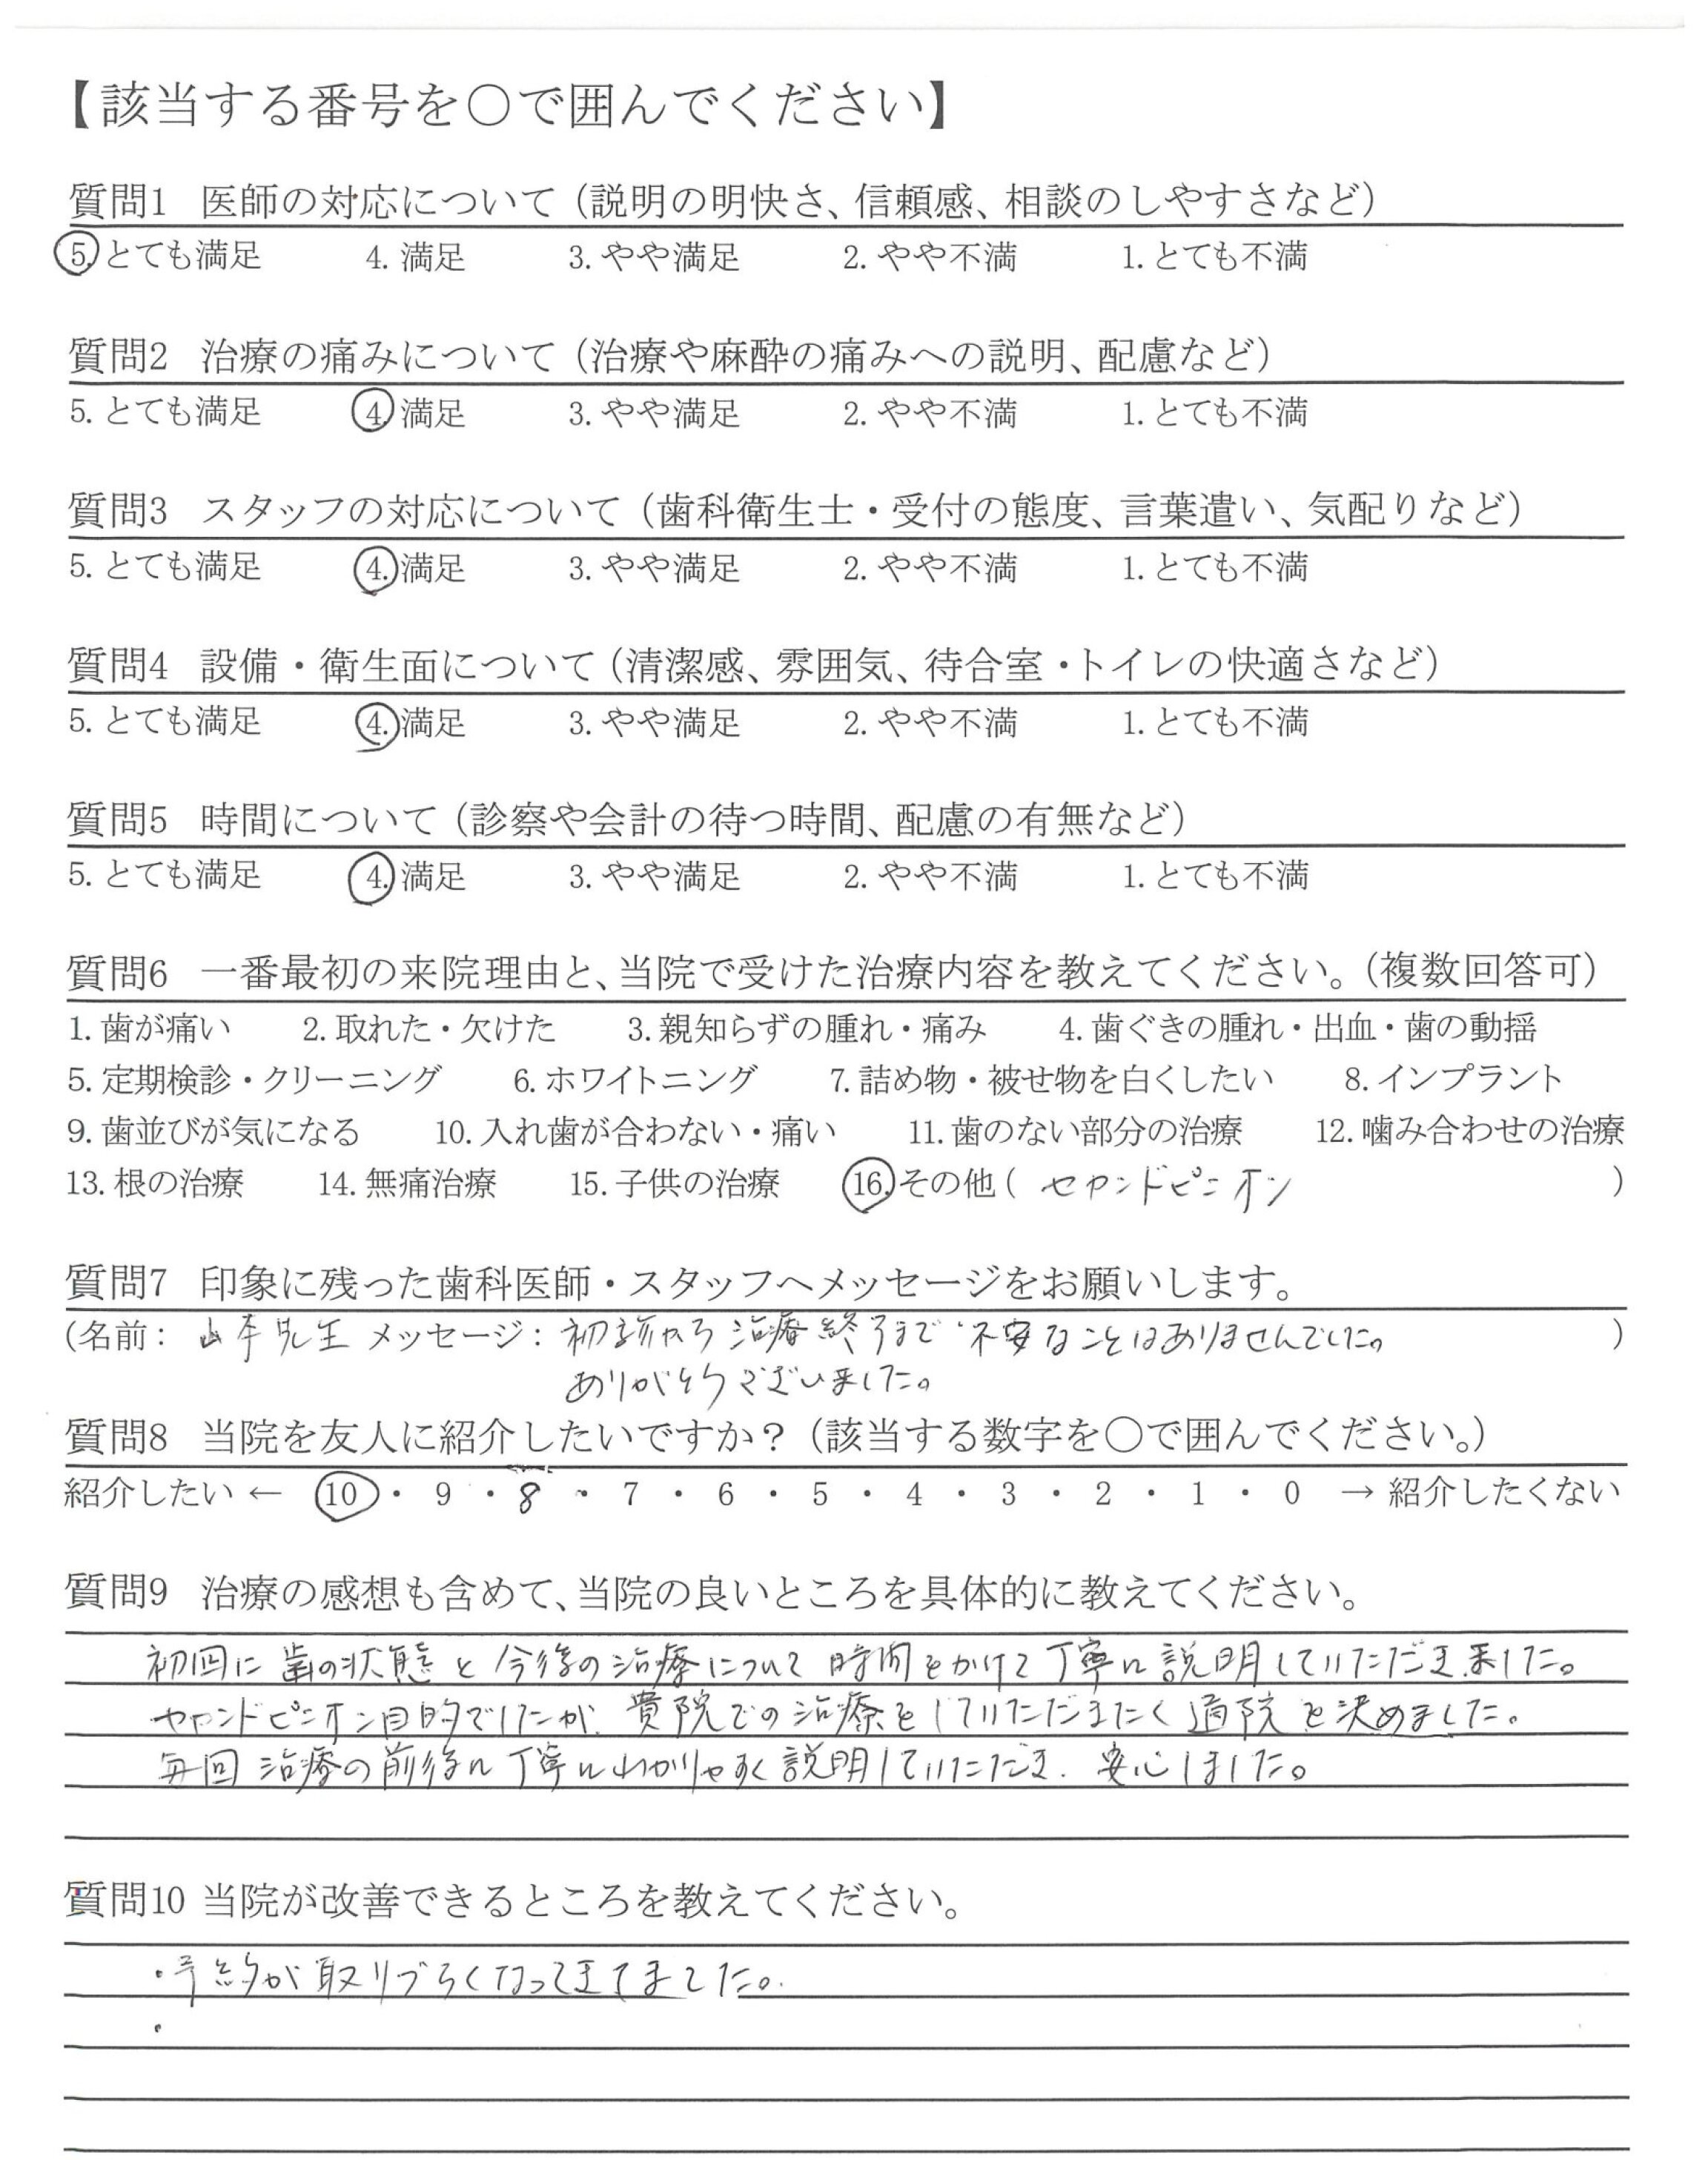 【該当する番号を○で囲んでください】
質問1 医師の対応について（説明の明快さ、信頼感、相談のしやすさなど）
5. とても満足 4. 満足 3. やや満足 2. やや不満 1. とても不満
質問2 治療の痛みについて（治療や麻酔の痛みへの説明、配慮など）
5. とても満足 4 満足 3. やや満足 2. やや不満 1. とても不満
質問3 スタッフの対応について（歯科衛生士・受付の態度、言葉遣い、気配りなど）
5. とても満足 4. 満足 3. やや満足 2. やや不満 1. とても不満
質問4 設備・衛生面について（清潔感、雰囲気、待合室・トイレの快適さなど）
5. とても満足 4. 満足 3. やや満足 2. やや不満 1. とても不満
質問5 時間について（診察や会計の待つ時間、配慮の有無など）
5. とても満足 4. 満足 3. やや満足 2. やや不満 1. とても不満
質問6 一番最初の来院理由と、当院で受けた治療内容を教えてください。（複数回答可）
1. 歯が痛い 2. 取れた・欠けた 3. 親知らずの腫れ・痛み 4. 歯ぐきの腫れ・出血・歯の動揺
5. 定期検診・クリーニング 6. ホワイトニング 7. 詰め物・被せ物を白くしたい 8. インプラント
9. 歯並びが気になる 10. 入れ歯が合わない・痛い 11. 歯のない部分の治療 12. 噛み合わせの治療
13. 根の治療 14. 無痛治療 15. 子供の治療 16. その他（ セカンドピニオン ）
質問7 印象に残った歯科医師・スタッフへメッセージをお願いします。
（名前： 山本先生 メッセージ： 初診から治療終了まで不安なことはありませんでした。 ）
ありがとうございました。
質問8 当院を友人に紹介したいですか？（該当する数字を○で囲んでください。）
紹介したい ← 10 ・ 9 ・ 8 ・ 7 ・ 6 ・ 5 ・ 4 ・ 3 ・ 2 ・ 1 ・ 0 → 紹介したくない
質問9 治療の感想も含めて、当院の良いところを具体的に教えてください。
初回に歯の状態と今後の治療について時間をかけて丁寧に説明していただきました。
セカンドピニオン目的でしたが、貴院での治療をしていただきたく通院を決めました。
毎回治療の前後に丁寧にわかりやすく説明していただき、安心しました。
質問10 当院が改善できるところを教えてください。
・予約が取りづらくなってきてました。
・